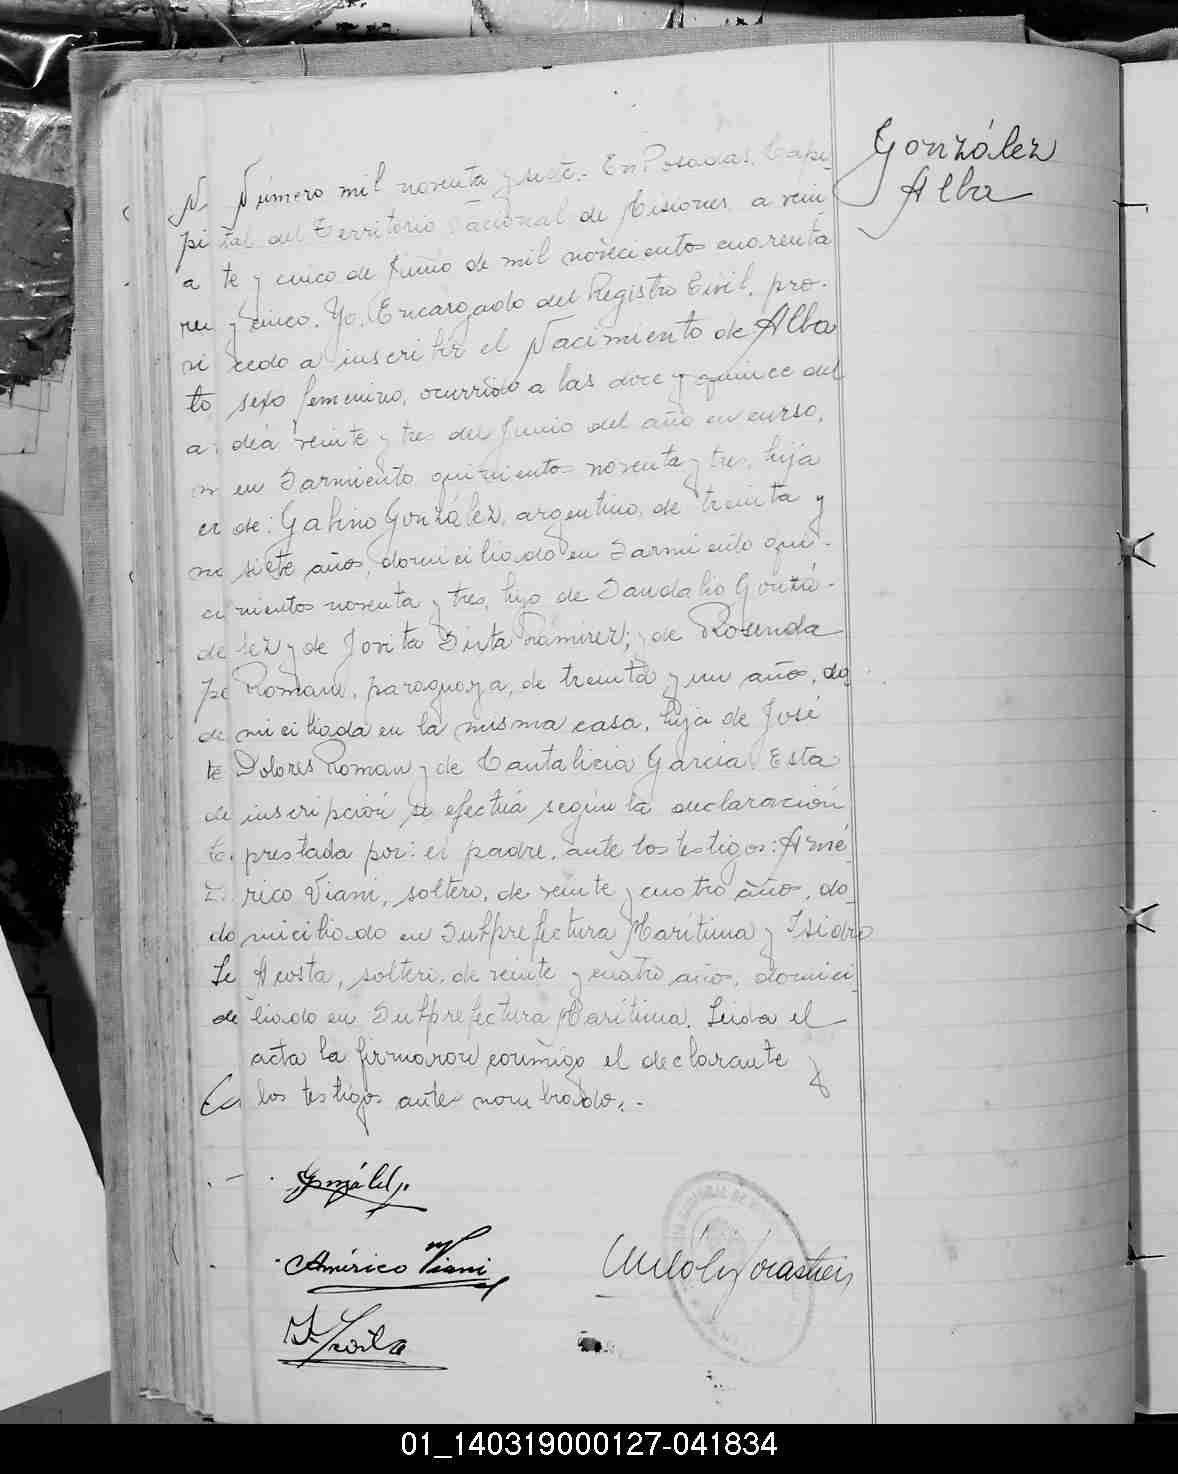 González
Alba
Número mil noventa y siete.- En Posadas, Capi-
tal del Territorio Nacional de Misiones, a vein
te y cinco de Junio de mil novecientos cuarenta
y cinco. Yo, Encargado del Registro Civil, pro-
cedo a inscribir el Nacimiento de Alba
sexo femenino, ocurrido a las doce y quince del
día veinte y tres del Junio del año en curso,
en Sarmiento quinientos noventa y tres, hija
de: Gabino González, argentino, de treinta y
siete años, domiciliado en Sarmiento qui-
nientos noventa y tres, hijo de Sandalio Gonzá-
lez y de Jovita Sixta Ramirez; y de Rosenda
Roman, paraguaya, de treinta y un años, do
miciliada en la misma casa, hija de José
Dolores Roman y de Cantalicia Garcia. Esta
inscripción se efectuá según la declaración
prestada por: el padre, ante los testigos: Amé
rico Viani, soltero, de veinte y cuatro años, do
miciliado en Subprefectura Marítima y Isidro
Acosta, soltero, de veinte y cuatro años, domici
liado en Subprefectura Marítima. Leida el
acta la firmaron conmigo el declarante y
los testigos antes nombrados.-
González
Américo Viani
01_140319000127-041834